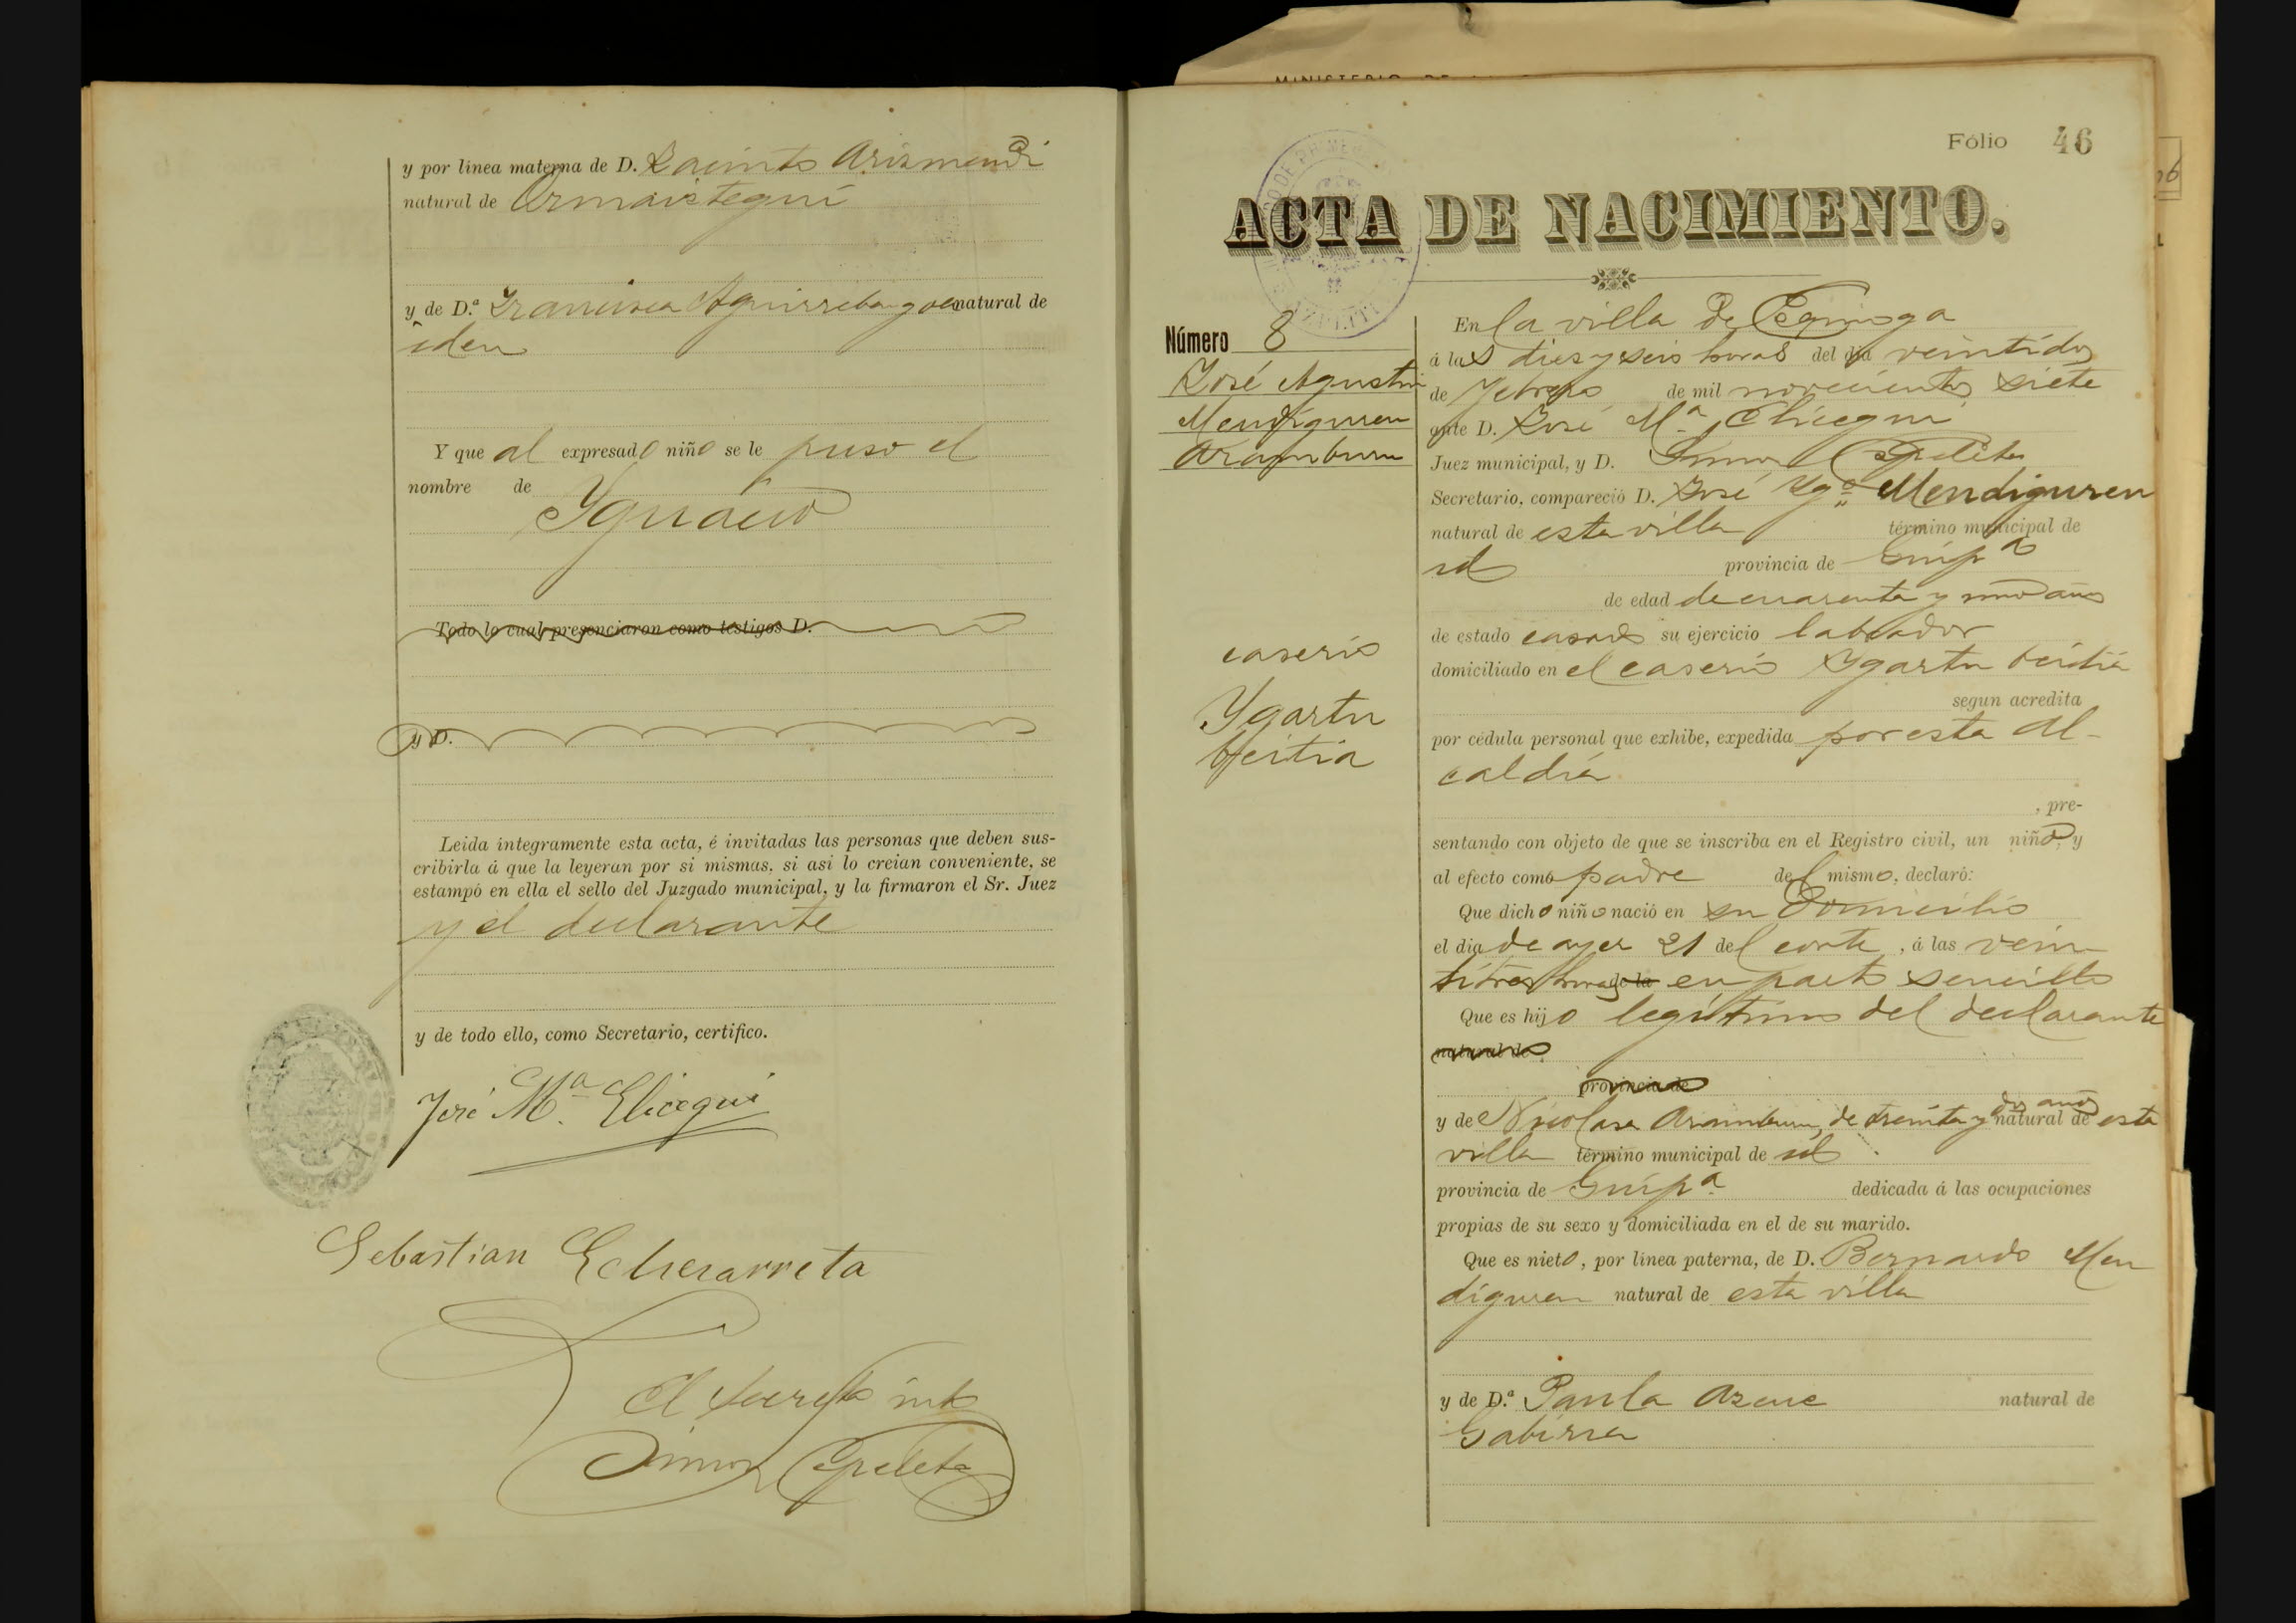 y por línea materna de D. Jacinto Arizmendi
natural de Ormaiztegui
y de D.ª Francisca Aguirrebengoa natural de
iden
Y que al expresado niño se le puso el
nombre de
Ygnacio
Todo lo cual presenciaron como testigos D.
y D.
Leida íntegramente esta acta, é invitadas las personas que deben sus-
cribirla á que la leyeran por si mismas, si asi lo creian conveniente, se
estampó en ella el sello del Juzgado municipal, y la firmaron el Sr. Juez
y el declarante
y de todo ello, como Secretario, certifico.
José M.ª Elicegui
Sebastian Echezarreta
El Secreto into
Simon Epeleta
Fólio 46
ACTA DE NACIMIENTO.
Número 8
José Agustin
Mendiguren
Aramburu
caserio
Ygartu
beitia
En la villa de Ezquioga
á las diez y seis horas del dia veintidos
de Febrero de mil novecientos siete
ante D. José M.ª Elicegui
Juez municipal, y D. Simon Epeleta
Secretario, compareció D. José Ygº Mendiguren
natural de esta villa término municipal de
id provincia de Guipª
de edad de cuarenta y uno años
de estado casado su ejercicio labrador
domiciliado en el caserio Ygartu beitia
segun acredita
por cédula personal que exhibe, expedida por esta Al-
caldia
, pre-
sentando con objeto de que se inscriba en el Registro civil, un niño, y
al efecto como padre del mismo, declaró:
Que dicho niño nació en su domicilio
el dia de ayer 21 del corte, á las vein
titres horas de la en parto sencillo
Que es hijo legítimo del declarante
natural de
provincia de
y de Nicolasa Aramburu, de treinta y dos años natural de esta
villa término municipal de id
provincia de Guipª dedicada á las ocupaciones
propias de su sexo y domiciliada en el de su marido.
Que es nieto, por línea paterna, de D. Bernardo Men
diguren natural de esta villa
y de D.ª Paula Azcue natural de
Gabiria